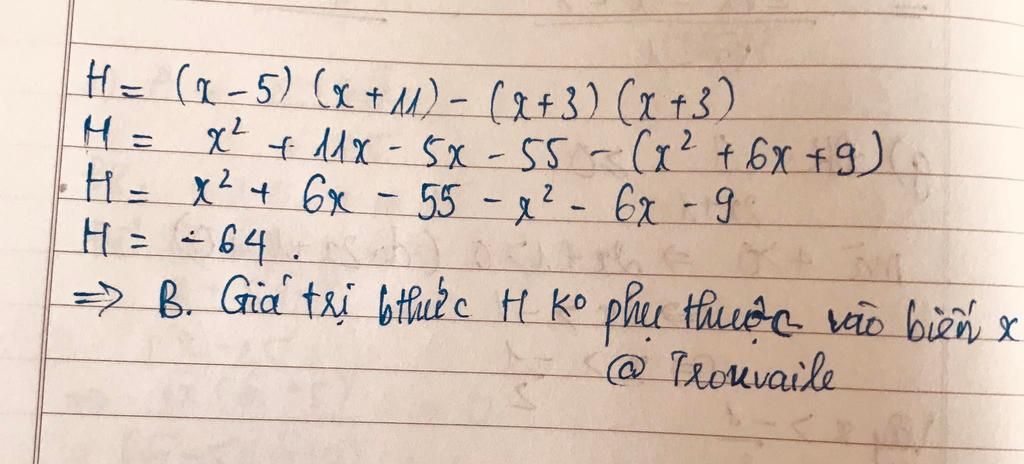 H = (x - 5) (x + 11) - (x + 3) (x + 3)
H = x² + 11x - 5x - 55 - (x² + 6x + 9)
H = x² + 6x - 55 - x² - 6x - 9
H = - 64 .
=> B. Giá trị bthức H ko phụ thuộc vào biến x
@ Trouvaile